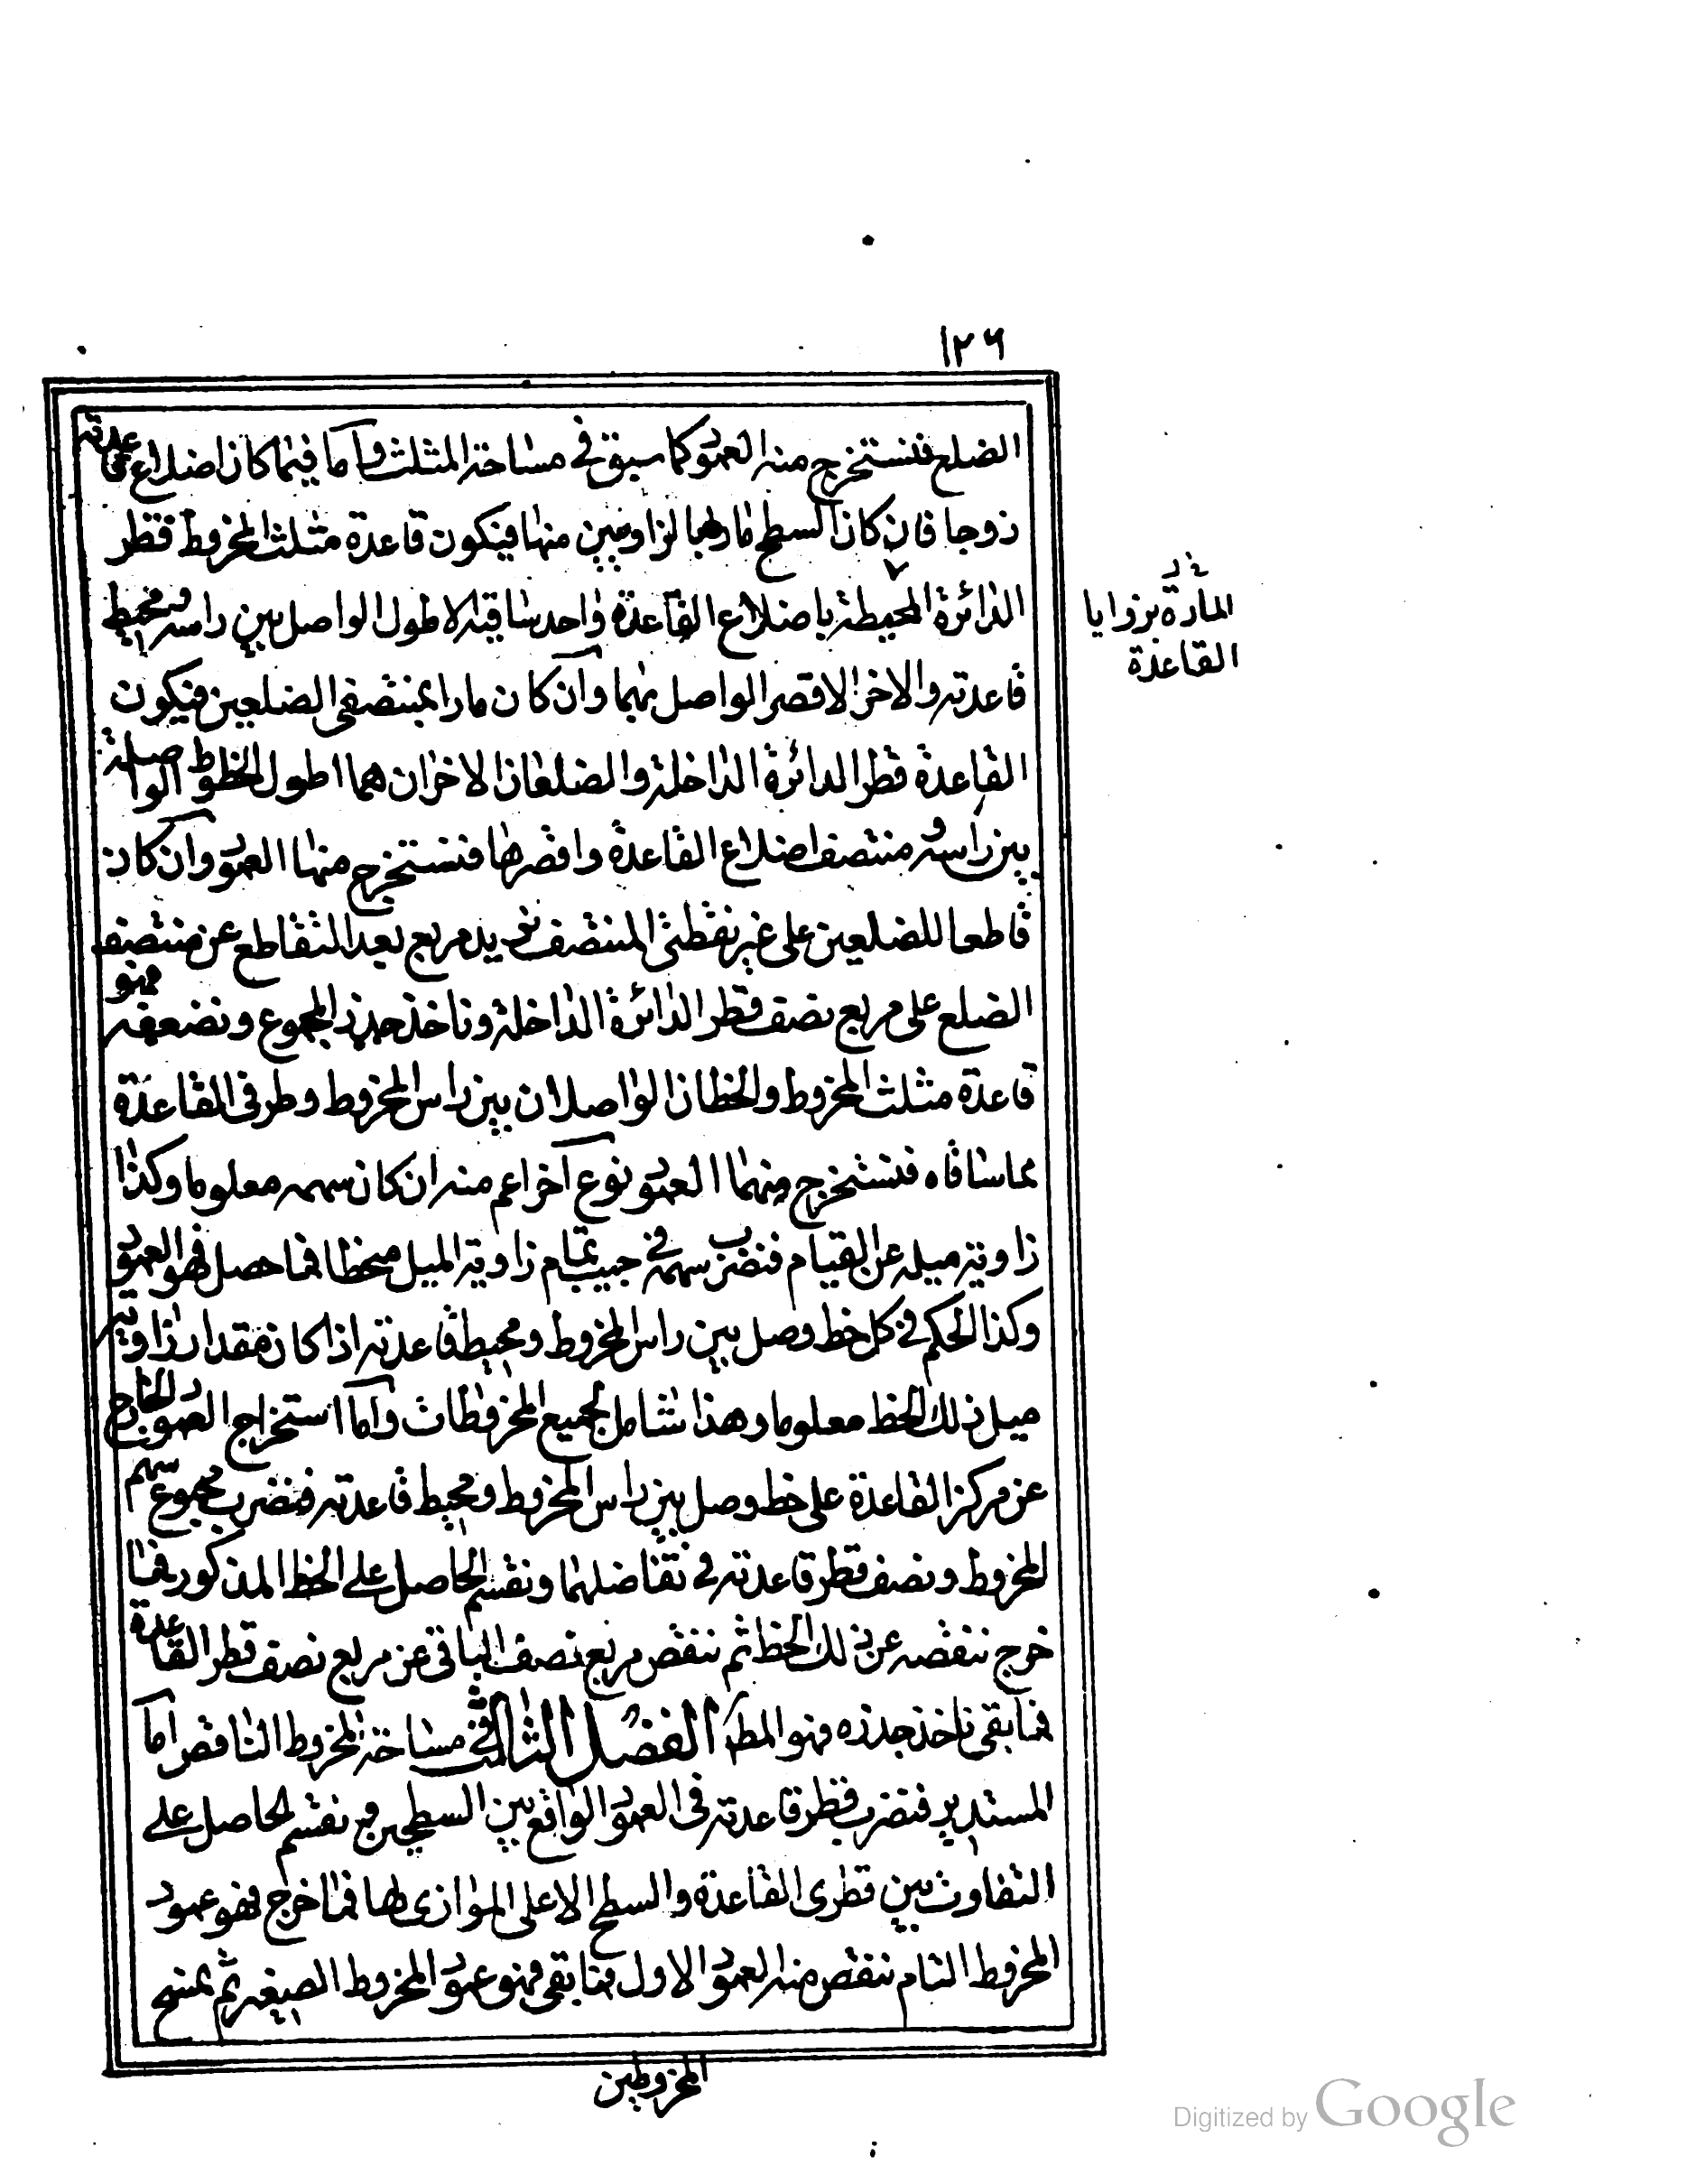 ١٢٦
الضلع فنستخرج منه العمود كما سبق في مساحة المثلث واما فيما كان اضلاع قاعدته
زوجا فان كان السطح مارا بالزاويتين منها فيكون قاعدة مثلث المخروط قطر
الدائرة المحيطة باضلاع القاعدة واحد ساقيه الاطول الواصل بين راسه ومحيط
قاعدته والاخر الاقصر الواصل بينهما وان كان مارا بمنتصفي الضلعين فيكون
القاعدة قطر الدائرة الداخلة والضلعان الاخران هما اطول الخطوط الواصلة
بين راسه ومنتصف اضلاع القاعدة واقصرها فنستخرج منها العمود وان كان
قاطعا للضلعين على غير نقطتي المنتصف نزيد مربع بعد التقاطع عن منتصف
الضلع على مربع نصف قطر الدائرة الداخلة وناخذ جذر المجموع ونضعفه فهو
قاعدة مثلث المخروط والخطان الواصلان بين راس المخروط وطرفي القاعدة
هما ساقاه فنستخرج منهما العمود نوع آخر اعم منه ان كان سهمه معلوما وكذا
زاوية ميله عن القيام فنضرب سهمه في جيب تمام زاوية الميل منحطا فما حصل فهو العمود
وكذا الحكم في كل خط وصل بين راس المخروط ومحيط قاعدته اذا كان مقدار زاوية
ميل ذلك الخط معلوما وهذا شامل لجميع المخروطات واما استخراج العمود الخارج
عن مركز القاعدة على خط وصل بين راس المخروط ومحيط قاعدته فنضرب مجموع سهم
المخروط ونصف قطر قاعدته في تفاضلهما ونقسم الحاصل على الخط المذكور فما
خرج ننقصه عن ذلك الخط ثم ننقص مربع نصف الباقي عن مربع نصف قطر القاعدة
فما بقى ناخذ جذره فهو المط الفصل الثالث في مساحة المخروط الناقص اما
المستدير فنضرب قطر قاعدته في العمود الواقع بين السطحين ونقسم الحاصل على
التفاوت بين قطرى القاعدة والسطح الاعلى الموازى لها فما خرج فهو عمود
المخروط التام ننقص منه العمود الاول فما بقى فهو عمود المخروط الصغير ثم نمسح
المخروطين
المادة بزوايا
القاعدة
Digitized by Google